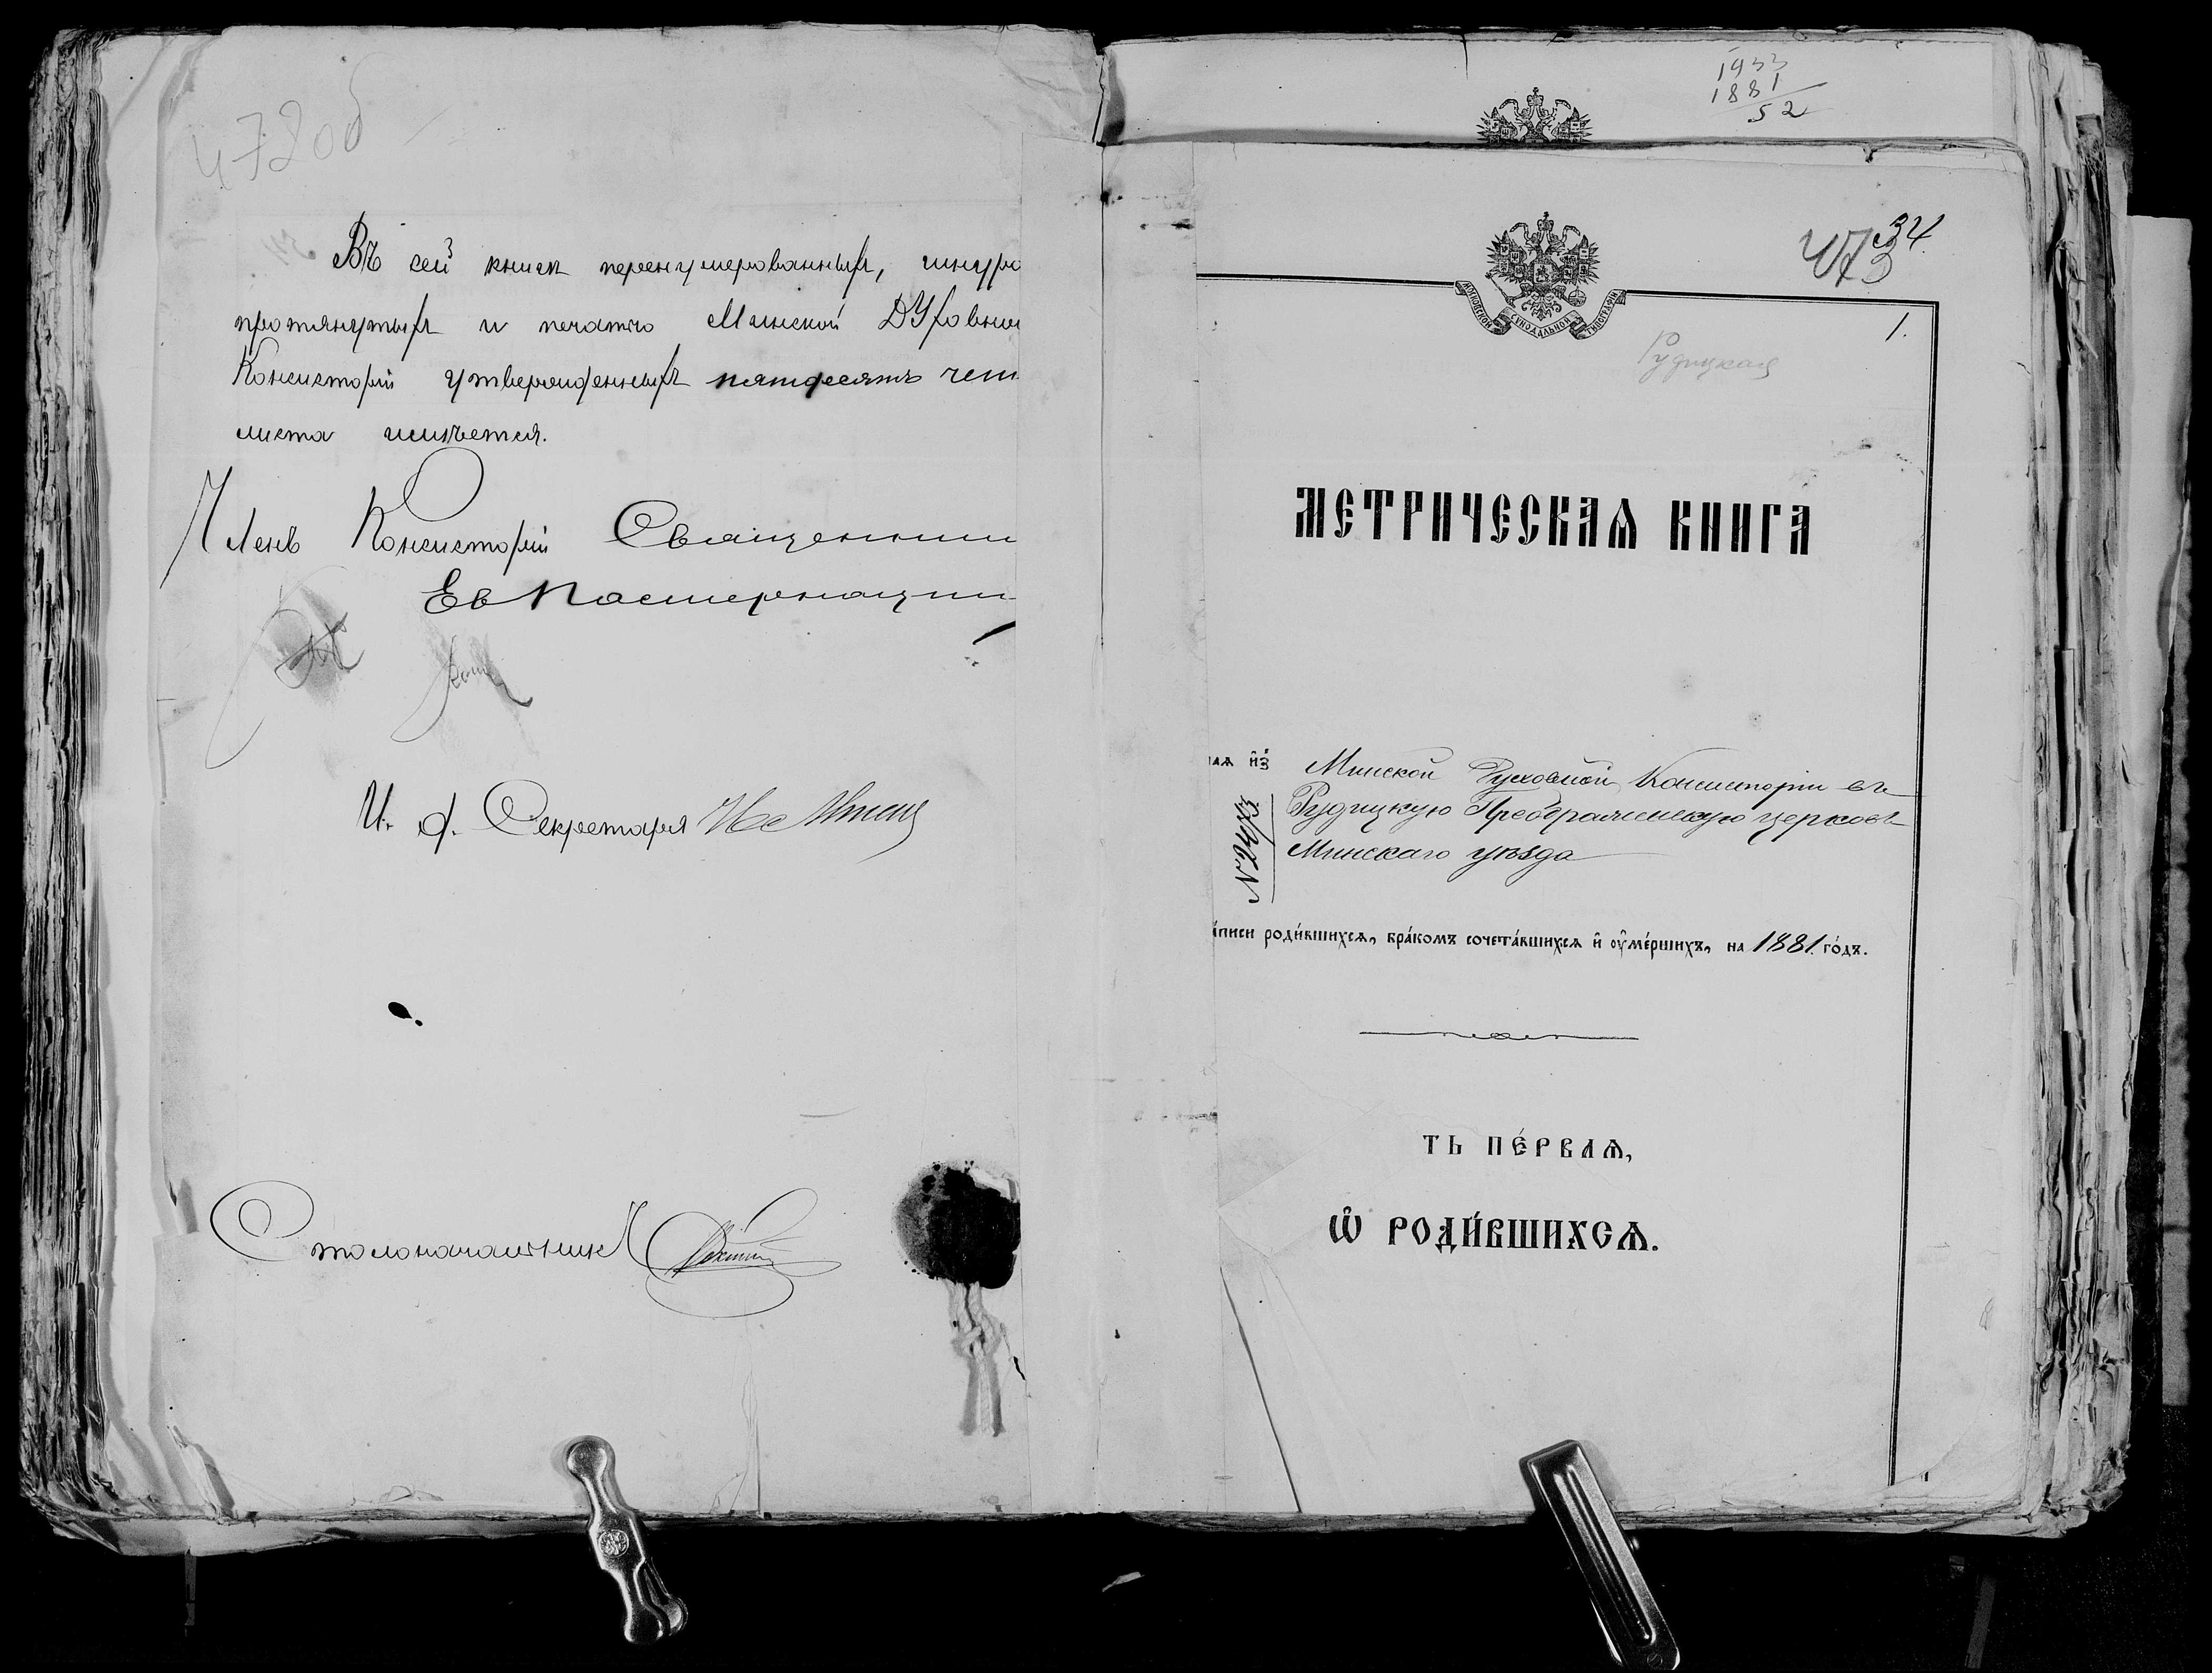 472об
Въ сей книгѣ перенумерованныхъ, шнуро
протянутыхъ и печатію Минской Духовной
Консисторіи утвержденныхъ пятдесятъ чет
листа имѣется.
Членъ Консисторіи Священник
Ев Пастернацкі
И. д. Секретаря
Столоначальникъ
1933
1881
52
34
473
МОСКОВСКОЙ СѴНОДАЛЬНОЙ ТИПОГРАФІИ
1.
Рудицкая
МЕТРИЧЕСКАѦ КНИГА
ная и҆з̾ Минской Духовной Консисторіи въ
Рудицкую Преображенскую церковь
Минскаго уѣзда
№ 2473
а́писи роди́вшихсѧ, бра́комъ сочета́вшихсѧ и҆ ᲂу҆ме́ршихъ, на 1881. го́дъ.
ТЬ ПЕ́РВАѦ,
Ѽ РОДИ́ВШИХСѦ.